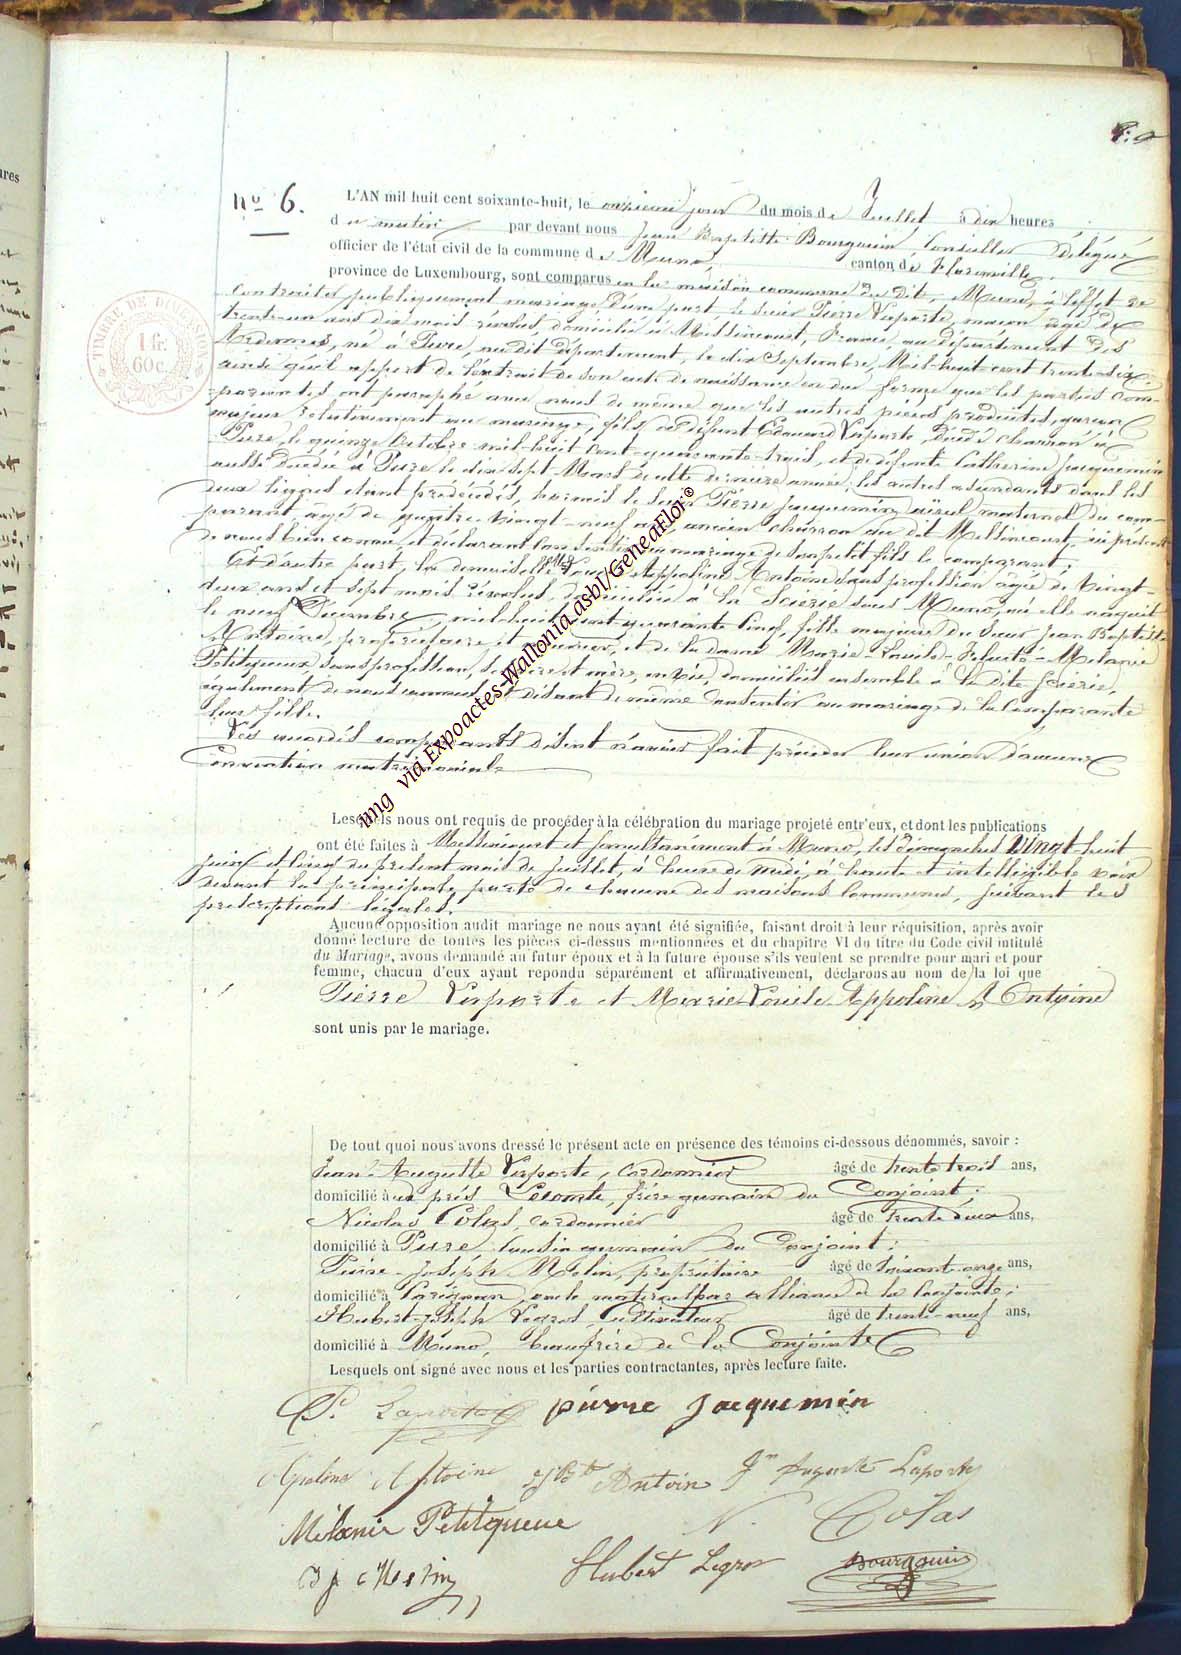 nº 6.
L'AN mil huit cent soixante-huit, le onzième jour du mois de Juillet à dix heures
du matin par devant nous Jean Baptiste Bourguin, Conseiller délégué
officier de l'état civil de la commune de Muno canton de Florenville
province de Luxembourg, sont comparus en la maison commune du dit Muno, à l'effet de
contracter publiquement mariage, d'une part, le sieur Pierre Laporte, maçon âgé de
trente-un ans dix mois révolus, domicilié à Messincourt, France, au département des
Ardennes, né à Pure, au dit département, le dix Septembre, Mil-huit cent trente-six,
ainsi qu'il appert de l'extrait de son acte de naissance en due forme que les parties com-
parantes ont paraphé avec nous de même que les autres pièces produites,
majeur relativement au mariage, fils de défunt Edouard Laporte, décédé charron à
Pure, le quinze Octobre mil-huit cent-quarante-trois, et de défunte Catherine Jacquemin
aussi décédée à Pure le dix sept Mars de cette dernière année; les autres ascendants dans les
deux lignes étant prédécédés, hormis le sieur Pierre Jacquemin, aïeul maternel du com-
parant âgé de quatre-vingt-neuf ans, ancien charron au dit Messincourt, ici présent
de nous bien connu, et déclarant consentir au mariage de son petit fils le comparant;
Et d'autre part, la demoiselle Marie Louise Appoline Antoine sans profession âgée de vingt-
deux ans et sept mois révolus, domiciliée à la Scierie sous Muno, où elle naquit
le neuf Décembre, mil-huit cent quarante cinq, fille majeure du sieur Jean Baptiste
Antoine, propriétaire et, et de la dame Marie-Louise-Félicité-Mélanie
Petitqueux, sans profession, ses père et mère, en vie, domiciliés ensemble à la dite Scierie,
également de nous connus, et disant de même consentir au mariage de la comparante
leur fille.
Les susdits comparants disent n'avoir fait précéder leur union d'aucune
Convention matrimoniale
Lesquels nous ont requis de procéder à la célébration du mariage projeté entr'eux, et dont les publications
ont été faites à Messincourt et simultanément à Muno, les dimanches vingt-huit
juin et cinq du présent mois de juillet, à heure de midi, à haute et intelligible voix
devant la principale porte de chacune des maisons Communes, suivant les
prescriptions légales.
Aucune opposition audit mariage ne nous ayant été signifiée, faisant droit à leur réquisition, après avoir
donné lecture de toutes les pièces ci-dessus mentionnées et du chapitre VI du titre du Code civil intitulé
du Mariage, avons demandé au futur époux et à la future épouse s'ils veulent se prendre pour mari et pour
femme, chacun d'eux ayant répondu séparément et affirmativement, déclarons au nom de la loi que
Pierre Laporte et Marie Louise Appoline Antoine
sont unis par le mariage.
De tout quoi nous avons dressé le présent acte en présence des témoins ci-dessous dénommés, savoir :
Jean-Auguste Laporte, Cordonnier âgé de trente trois ans,
domicilié aux prés Lecomte, frère germain du Conjoint;
Nicolas Colas, cordonnier âgé de trente deux ans,
domicilié à Pure Cousin germain du Conjoint;
Pierre-Joseph Molin, propriétaire âgé de soixante-onze ans,
domicilié à Carignan, oncle maternel par alliance de la Conjointe;
Hubert-Joseph Legros, Cultivateur âgé de trente-neuf ans,
domicilié à Muno, beau-frère de la Conjointe
Lesquels ont signé avec nous et les parties contractantes, après lecture faite.
P. Laporte pierre Jacquemin
Apoline Antoine J Bte Antoine Jn Auguste Laporte
Mélanie Petitqueue N. Colas
Hubert Legros Bourguin
TIMBRE DE DIMENSION
1 fr.
60 c.
img via Expoactes-Wallonia asbl/GeneaFlor®